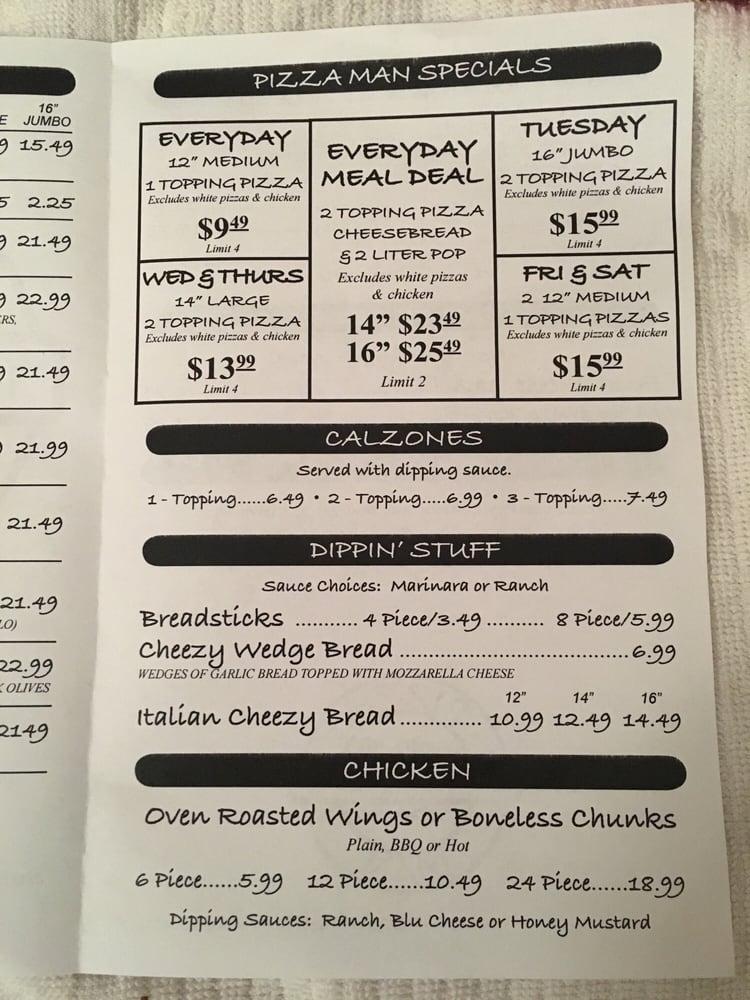 16"
JUMBO
15.49
2.25
21.49
22.99
21.49
21.99
21.49
21.49
22.99
OLIVES
2149
PIZZA MAN SPECIALS
EVERYDAY
12" MEDIUM
1 TOPPING PIZZA
Excludes white pizzas & chicken
$9.49
Limit 4
WED & THURS
14" LARGE
2 TOPPING PIZZA
Excludes white pizzas & chicken
$13.99
Limit 4
EVERYDAY
MEAL DEAL
2 TOPPING PIZZA
CHEESEBREAD
& 2 LITER POP
Excludes white pizzas
& chicken
14" $23.49
16" $25.49
Limit 2
TUESDAY
16" JUMBO
2 TOPPING PIZZA
Excludes white pizzas & chicken
$15.99
Limit 4
FRI & SAT
2 12" MEDIUM
1 TOPPING PIZZAS
Excludes white pizzas & chicken
$15.99
Limit 4
CALZONES
Served with dipping sauce.
1 - Topping......6.49 • 2 - Topping.....6.99 • 3 - Topping.....7.49
DIPPIN' STUFF
Sauce Choices: Marinara or Ranch
Breadsticks ........... 4 Piece/3.49 .......... 8 Piece/5.99
Cheezy Wedge Bread ......................................6.99
WEDGES OF GARLIC BREAD TOPPED WITH MOZZARELLA CHEESE
12" 14" 16"
Italian Cheezy Bread.............. 10.99 12.49 14.49
CHICKEN
Oven Roasted Wings or Boneless Chunks
Plain, BBQ or Hot
6 Piece......5.99 12 Piece......10.49 24 Piece......18.99
Dipping Sauces: Ranch, Blu Cheese or Honey Mustard